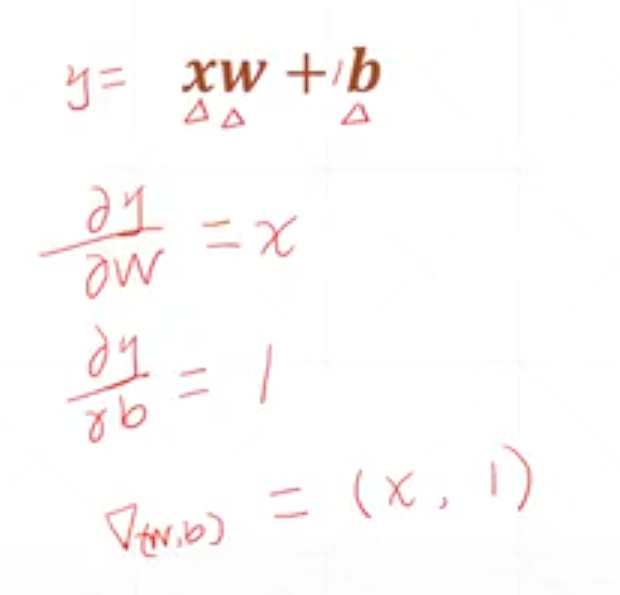 y = xw + 1b
△ △ △
∂y/∂w = x
∂y/∂b = 1
∇(w,b) = (x, 1)